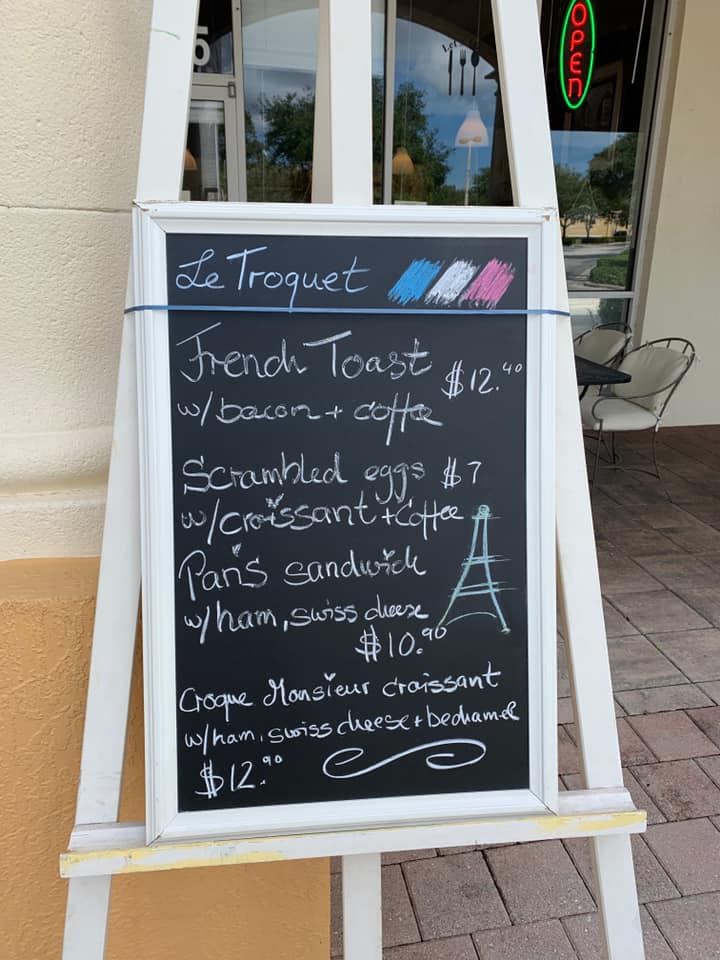 5
Le
OPEN
Le Troquet
French Toast $12.40
w/bacon + coffee
Scrambled eggs $7
w/croissant + coffee
Paris sandwich
w/ham, swiss cheese
$10.90
Croque Monsieur croissant
w/ham, swiss cheese + bechamel
$12.90